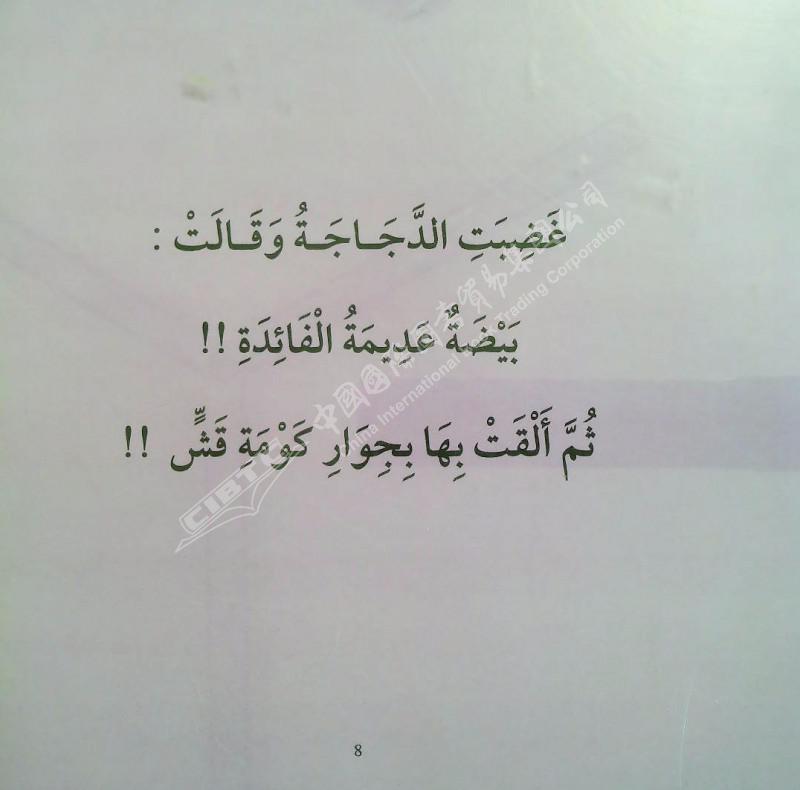 غَضِبَتِ الدَّجَـاجَـةُ وَقَـالَتْ :
بَيْضَةٌ عَدِيمَةُ الْفَائِدَةِ !!
ثُمَّ أَلْقَتْ بِهَا بِجِوَارِ كَوْمَةِ قَشٍّ !!
8
CIBTC 中国国际图书贸易集团公司
China International Book Trading Corporation